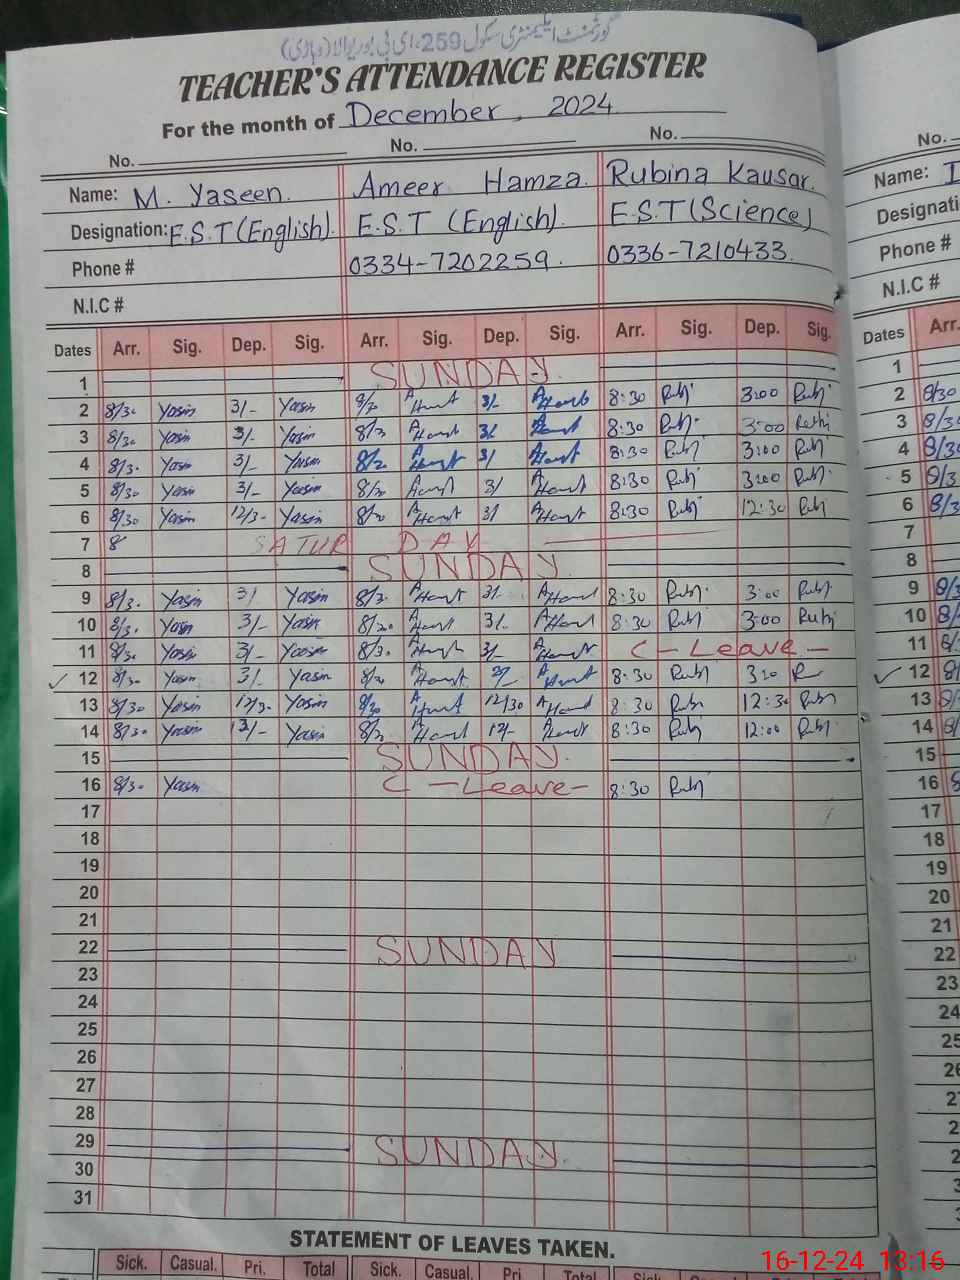 گورنمنٹ ایلیمنٹری سکول 259، ای بی بوریوالا (وہاڑی)
TEACHER'S ATTENDANCE REGISTER
For the month of December, 2024
No. No. No. No.
Name: M. Yaseen. Ameer Hamza. Rubina Kausar. Name:
Designation: E.S.T (English). E.S.T (English). E.S.T (Science)
Phone # 0334-7202259. 0336-7210433. Phone #
N.I.C # N.I.C #
Dates Arr. Sig. Dep. Sig. Arr. Sig. Dep. Sig. Arr. Sig. Dep. Sig. Dates Arr.
1 SUNDAY 1
2 8/30 Yasin 3/- Yasin 8/30 3/- 8:30 Rubi 3:00 Rubi 2 8/30
3 8/30 Yasin 3/- Yasin 8/30 3/- 8:30 Rubi 3:00 3
4 8/30 Yasin 3/- Yasin 8/30 3/ 8:30 Rubi 3:00 Rubi 4
5 8/30 Yasin 3/- Yasin 8/30 3/ 8:30 Rubi 3:00 Rubi 5
6 8/30 Yasin 12/30 Yasin 8/30 3/ 8:30 Rubi 12:30 Rubi 6
7 8 SATURDAY 7
8 SUNDAY 8
9 8/30 Yasin 3/ Yasin 8/30 3/- 8:30 Rubi 3:00 Rubi 9
10 8/30 Yasin 3/- Yasin 8/30 3/- 8:30 Rubi 3:00 Rubi 10
11 8/30 Yasin 3/- Yasin 8/30 3/- C-Leave- 11
12 8/30 Yasin 3/- Yasin 8/30 8:30 Rubi 12
13 8/30 Yasin 12/30 Yasin 8/30 12/30 8:30 Rubi 12:30 Rubi 13
14 8/30 Yasin 12/- Yasin 8/30 12/- 8:30 Rubi 12:00 Rubi 14
15 SUNDAY 15
16 8/30 Yasin C-Leave- 8:30 Rubi 16
17 17
18 18
19 19
20 20
21 21
22 SUNDAY 22
23 23
24 24
25 25
26 26
27
28
29 SUNDAY
30
31
STATEMENT OF LEAVES TAKEN.
Sick. Casual. Pri. Total Sick. Casual. Pri. Total Sick. Casual.
16-12-24 13:16